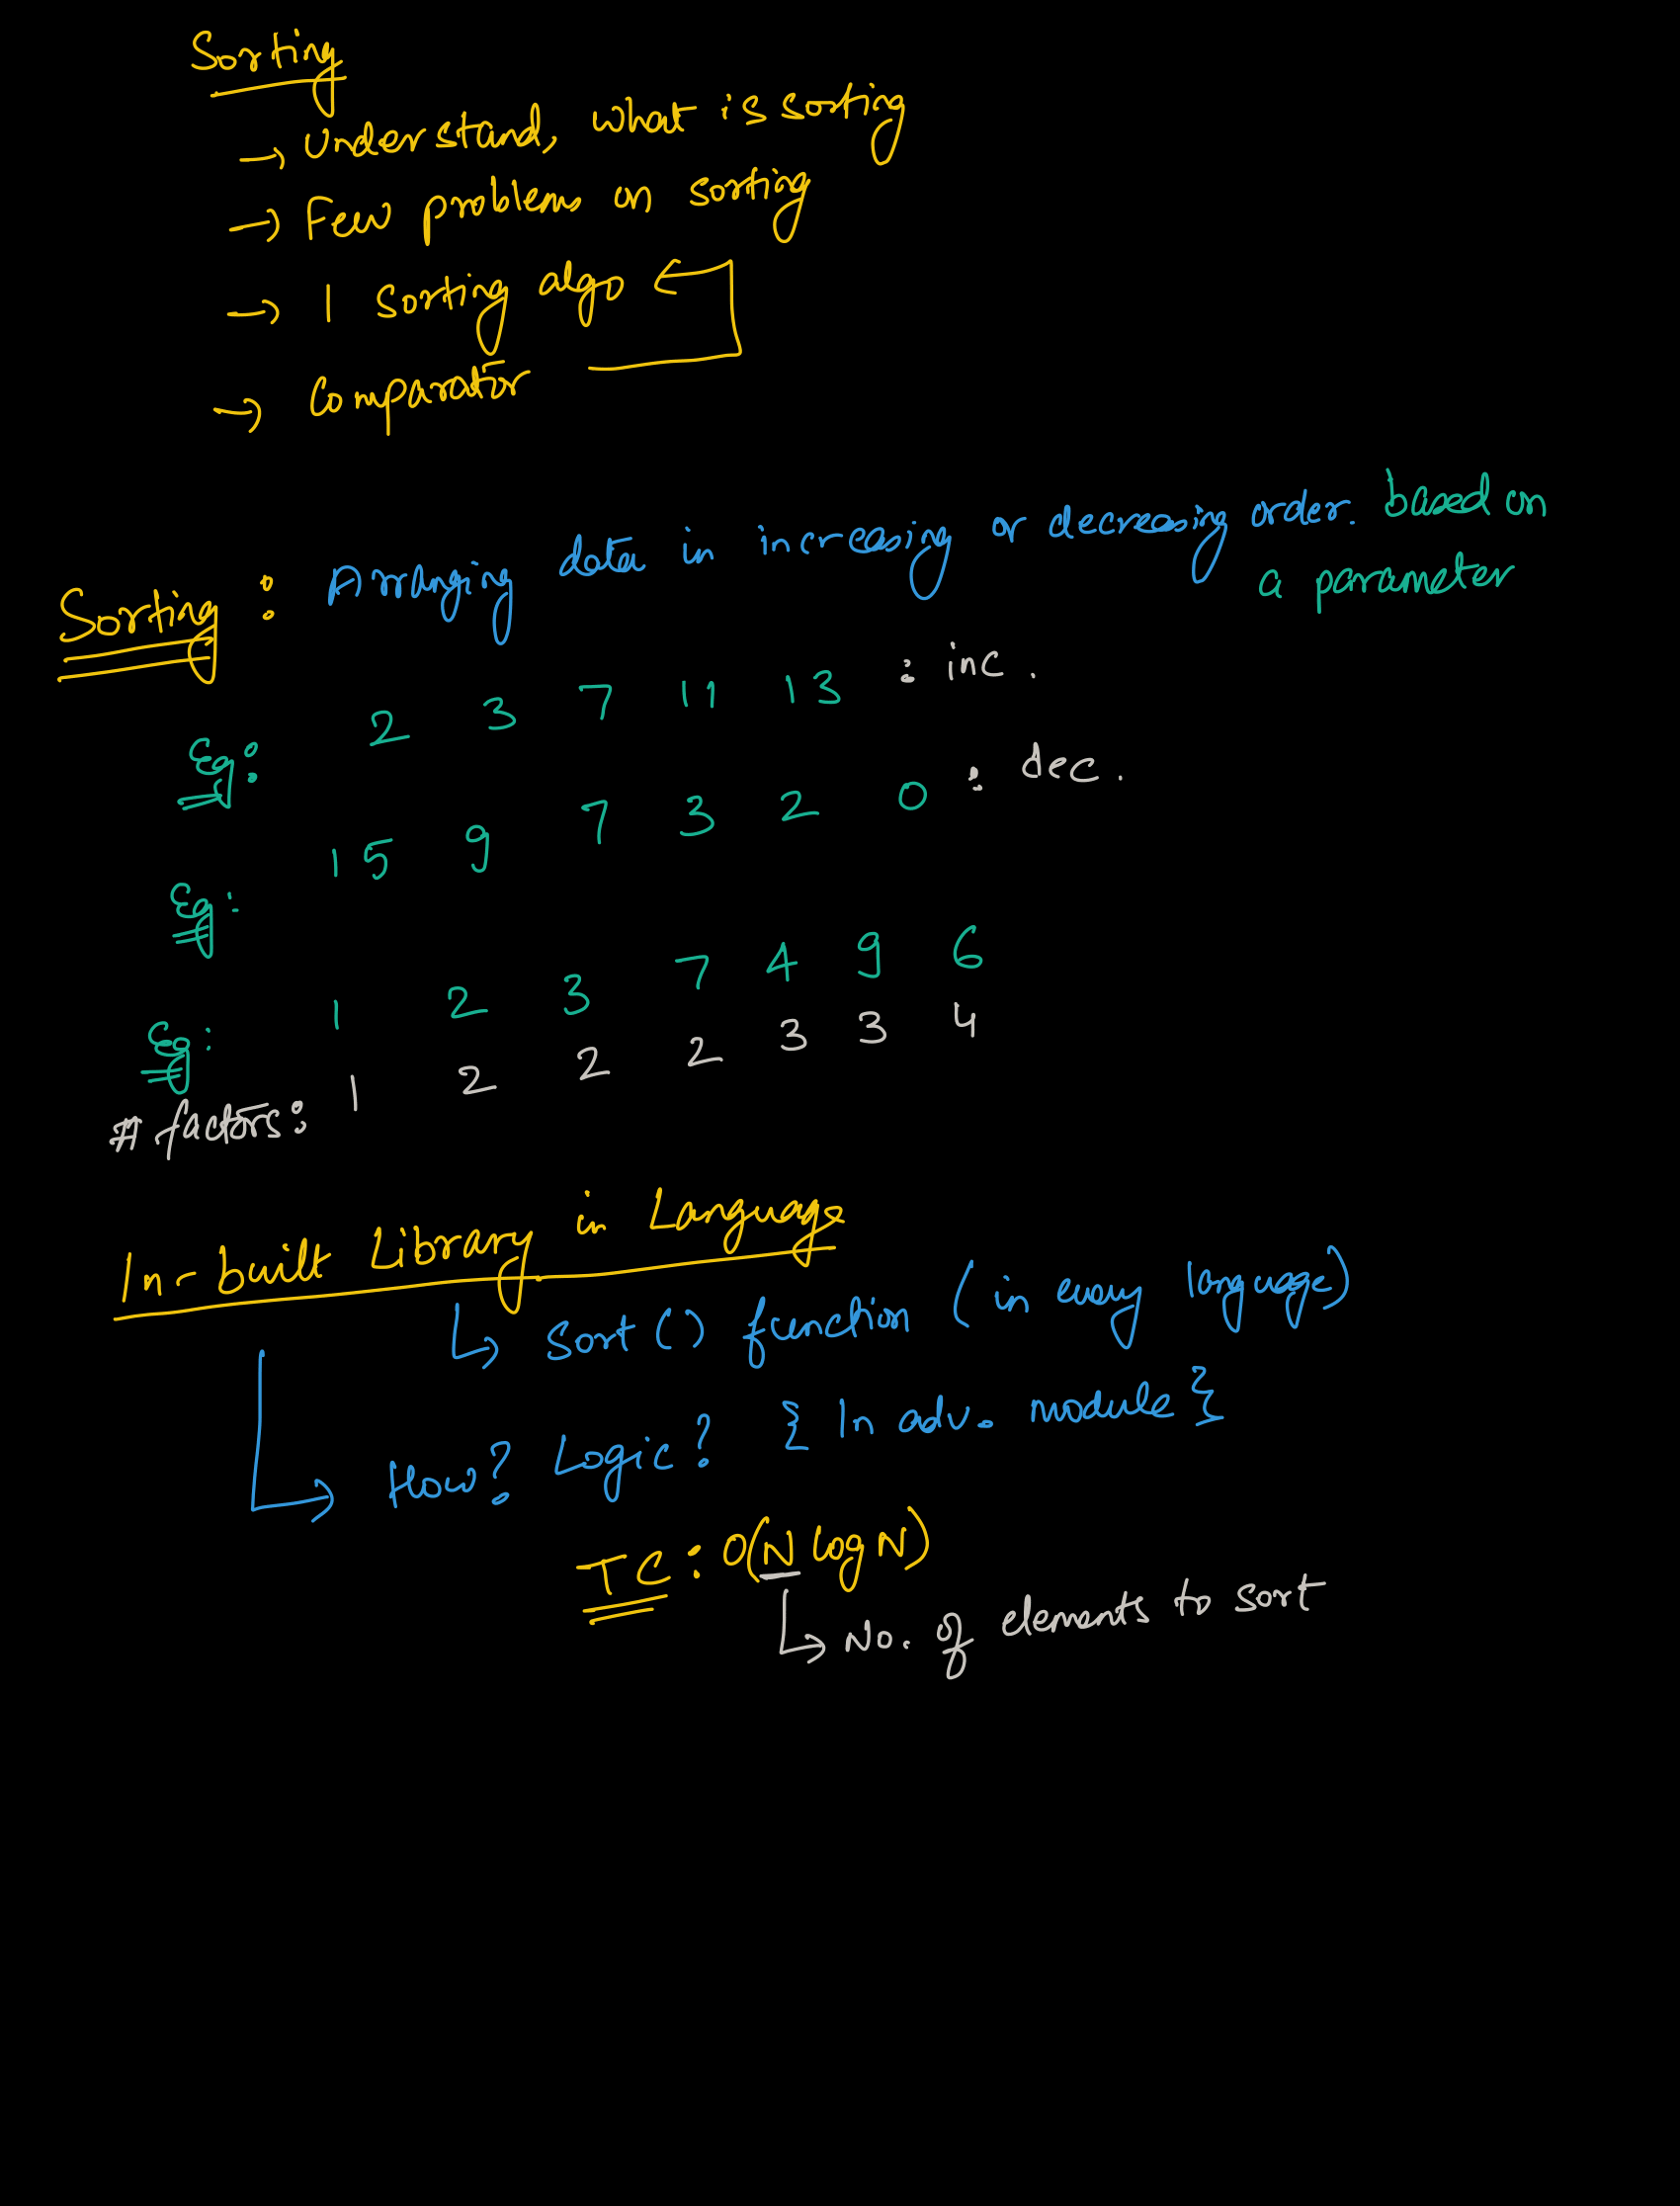 Sorting
→ Understand, what is sorting
→ Few problems on sorting
→ 1 sorting algo
→ Comparator
Sorting : Arranging data in increasing or decreasing order. based on
a parameter
Eg: 2 3 7 11 13 : inc.
Eg: 15 9 7 3 2 0 : dec.
Eg: 1 2 3 7 4 9 6
# factors: 1 2 2 2 3 3 4
In-built Library in Language
↳ Sort() function (in every language)
↳ How? Logic? { In adv. module }
TC : O(N log N)
↳ No. of elements to sort